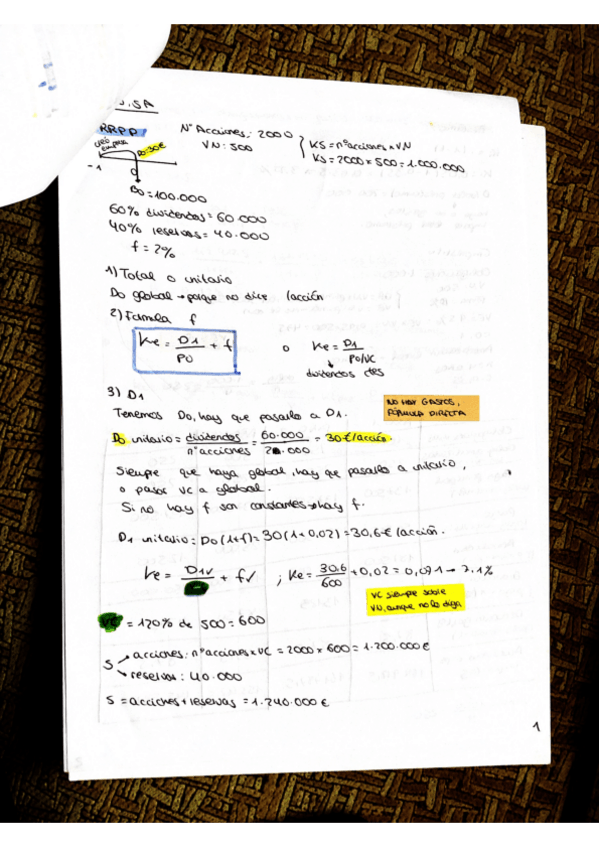 S.SA
RRPP
Nº Acciones: 2000
VN: 500
KS = nº acciones x VN
KS = 2000 x 500 = 1.000.000
D0 30€
-1
0
B0 = 100.000
60% dividendos = 60.000
40% reservas = 40.000
f = 2%
1) Total o unitario
D0 global → porque no dice /acción
2) Fórmula f
Ke = D1/P0 + f o Ke = D1/P0/VC
dividendos ctes
3) D1
NO HAY GASTOS,
FÓRMULA DIRECTA
Tenemos D0, hay que pasarlo a D1.
D0 unitario = dividendos/nº acciones = 60.000/2.000 = 30€/acción.
Siempre que haya global, hay que pasarlo a unitario,
o pasar VC a global.
Si no hay f son constantes → hay f.
D1 unitario: D0(1+f) = 30(1+0,02) = 30,6€/acción.
Ke = D1✓/ + f✓ ; Ke = 30,6/600 + 0,02 = 0,071 → 7,1%
VC siempre sobre
VN, aunque no lo diga
VC = 120% de 500 = 600
S
acciones: nº acciones x VC = 2000 x 600 = 1.200.000€
reservas: 40.000
S = acciones + reservas = 1.240.000€
1